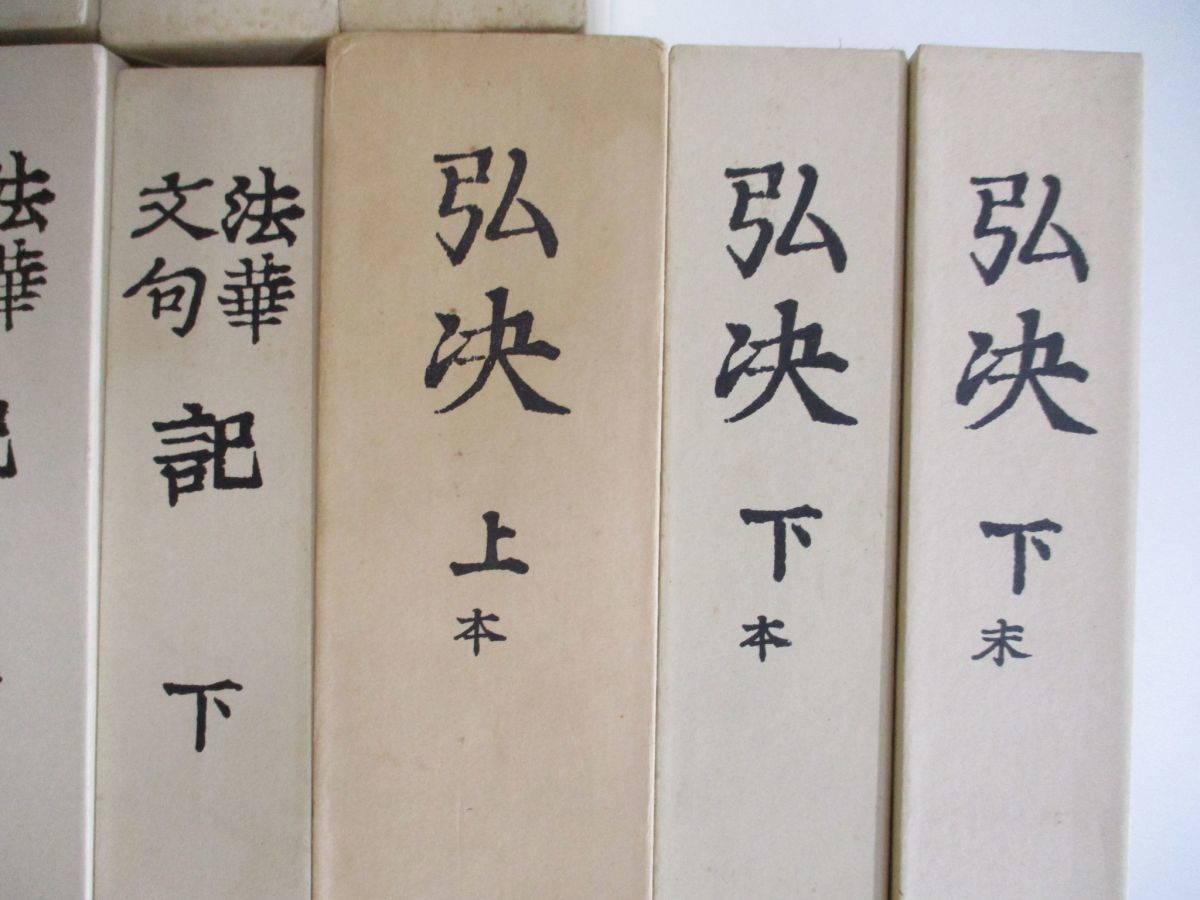 法華
法華
文句
記
下
弘决
上
本
弘决
下
本
弘决
下
末